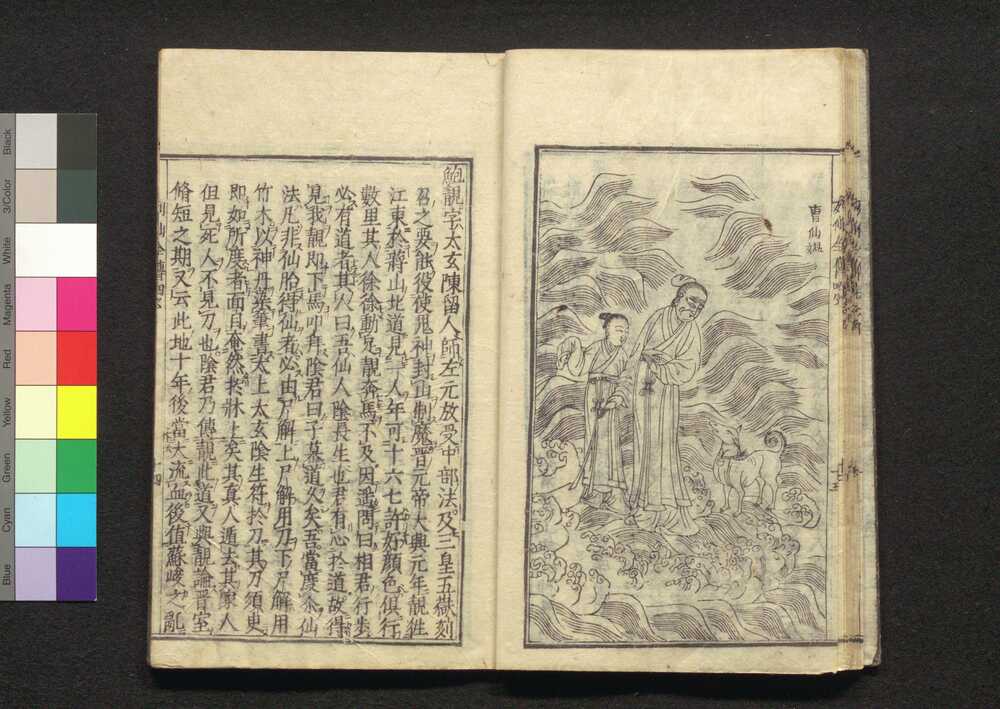 曹仙媼
鮑靚字太玄陳留人師左元放受中部法及三皇五嶽刻
召之要能役使鬼神封山制魔晋元帝大興元年靚徃
江東於蔣山北道見一人年可十六七許好顔色俱行
數里其人徐徐動足靚奔馬不及因遥問曰相君行步
必有道者其人曰吾仙人陰長生也君有心於道故得
見我靚即下馬叩拜陰君曰子慕道久矣吾當度子仙
法凡非仙胎得仙者必由尸解上尸解用刀下尸解用
竹木以神丹染筆書太上太玄陰生符於刀其刀須臾
即如所度者面目奄然於牀上矣其真人遁去其家人
但見死人不見刀也陰君乃傳靚此道又與靚論晋室
脩短之期又云此地十年後當大流血後值蘇峻之亂
Black
3/Color
White
Magenta
Red
Yellow
Green
Cyan
Blue